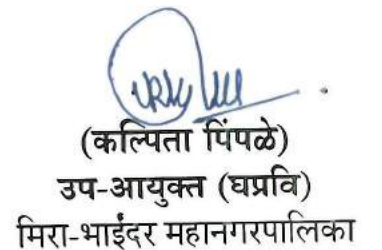 (कल्पिता पिंपळे)
उप-आयुक्त (घप्रवि)
मिरा-भाईंदर महानगरपालिका